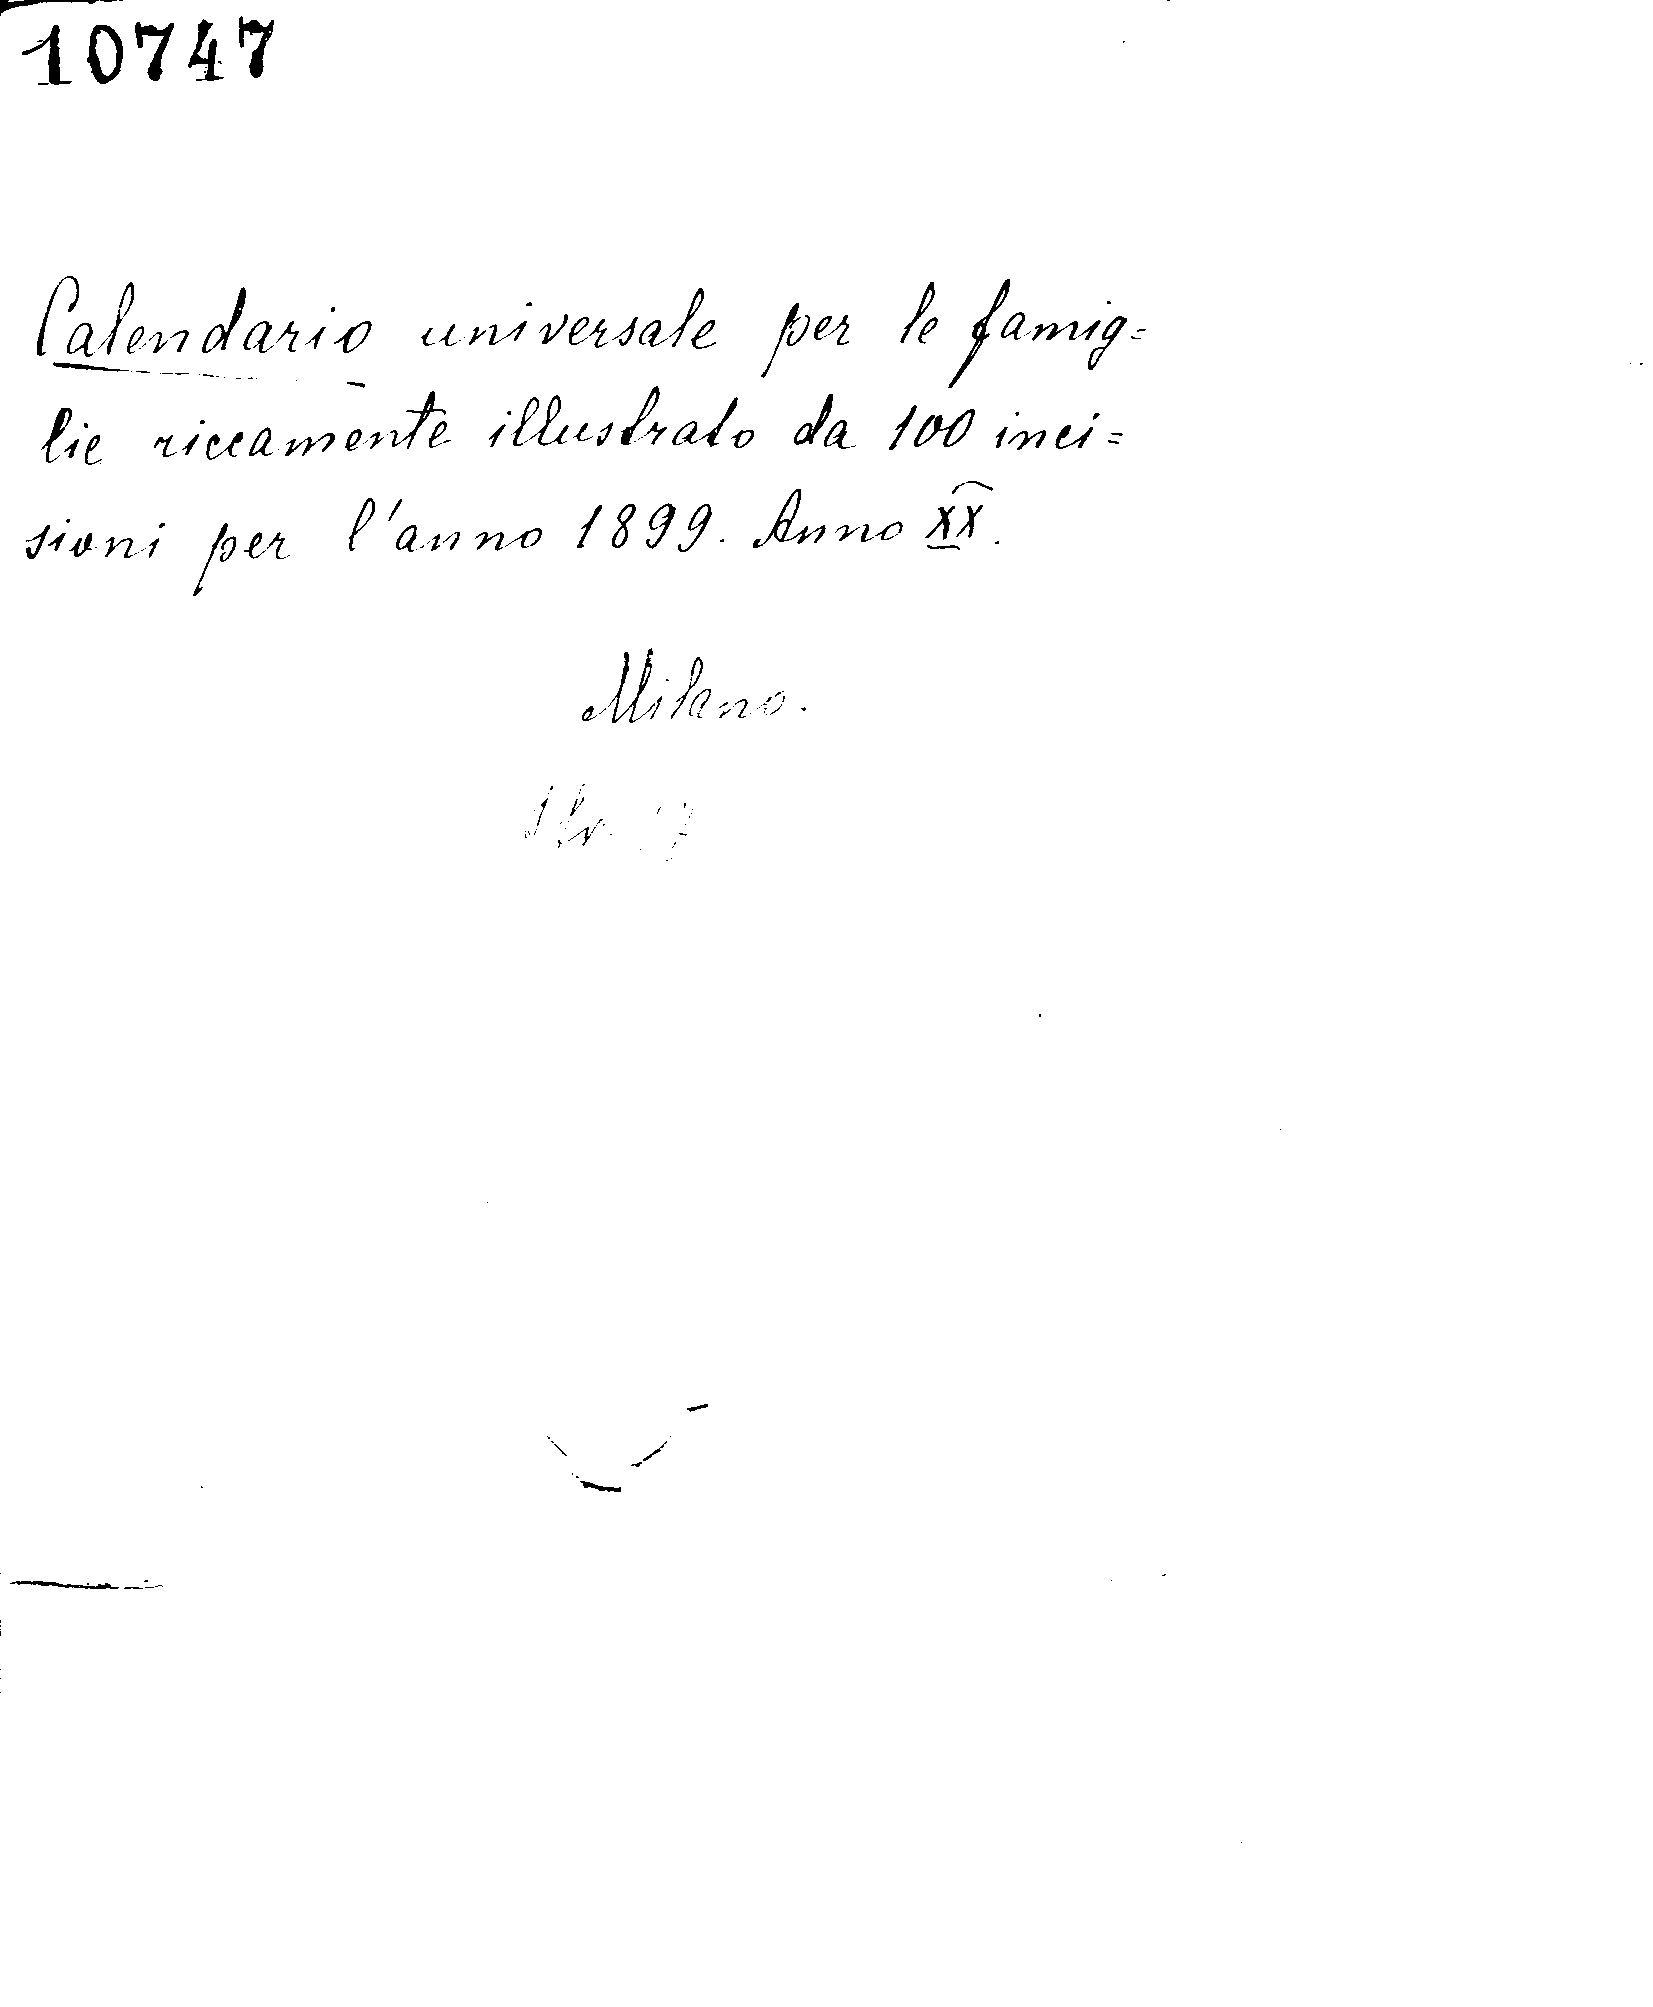 10747
Calendario universale per le famig=
lie riccamente illustrato da 100 inci=
sioni per l'anno 1899. Anno XX.
Milano.